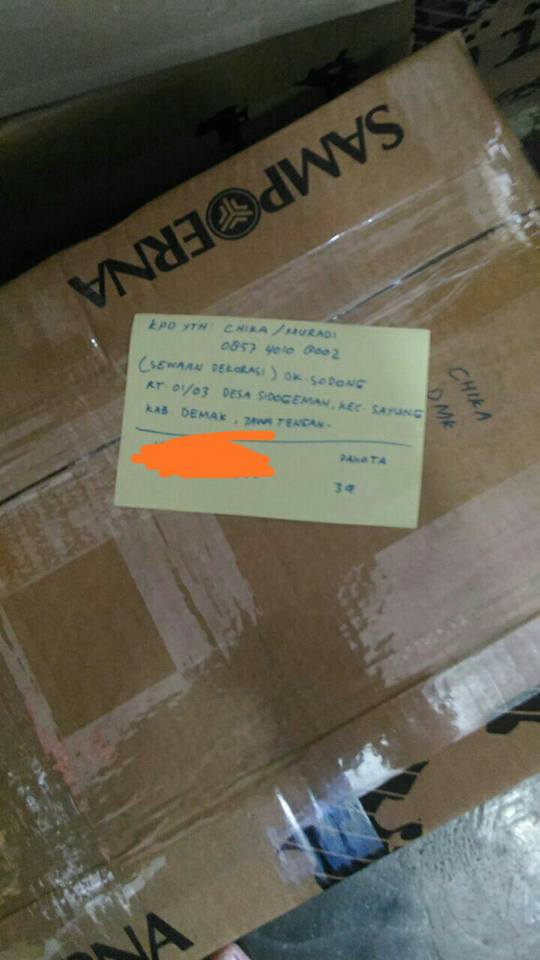 SAMPOERNA
KPD YTH: CHIKA / MURADI
0857 4010 8002
(SEWAAN DEKORASI) DK. SODONG
RT. 01/03 DESA SIDOGEMAH, KEC. SAYUNG
KAB. DEMAK, JAWA TENGAH.
DAKOTA
39
CHIKA
DMK
RNA